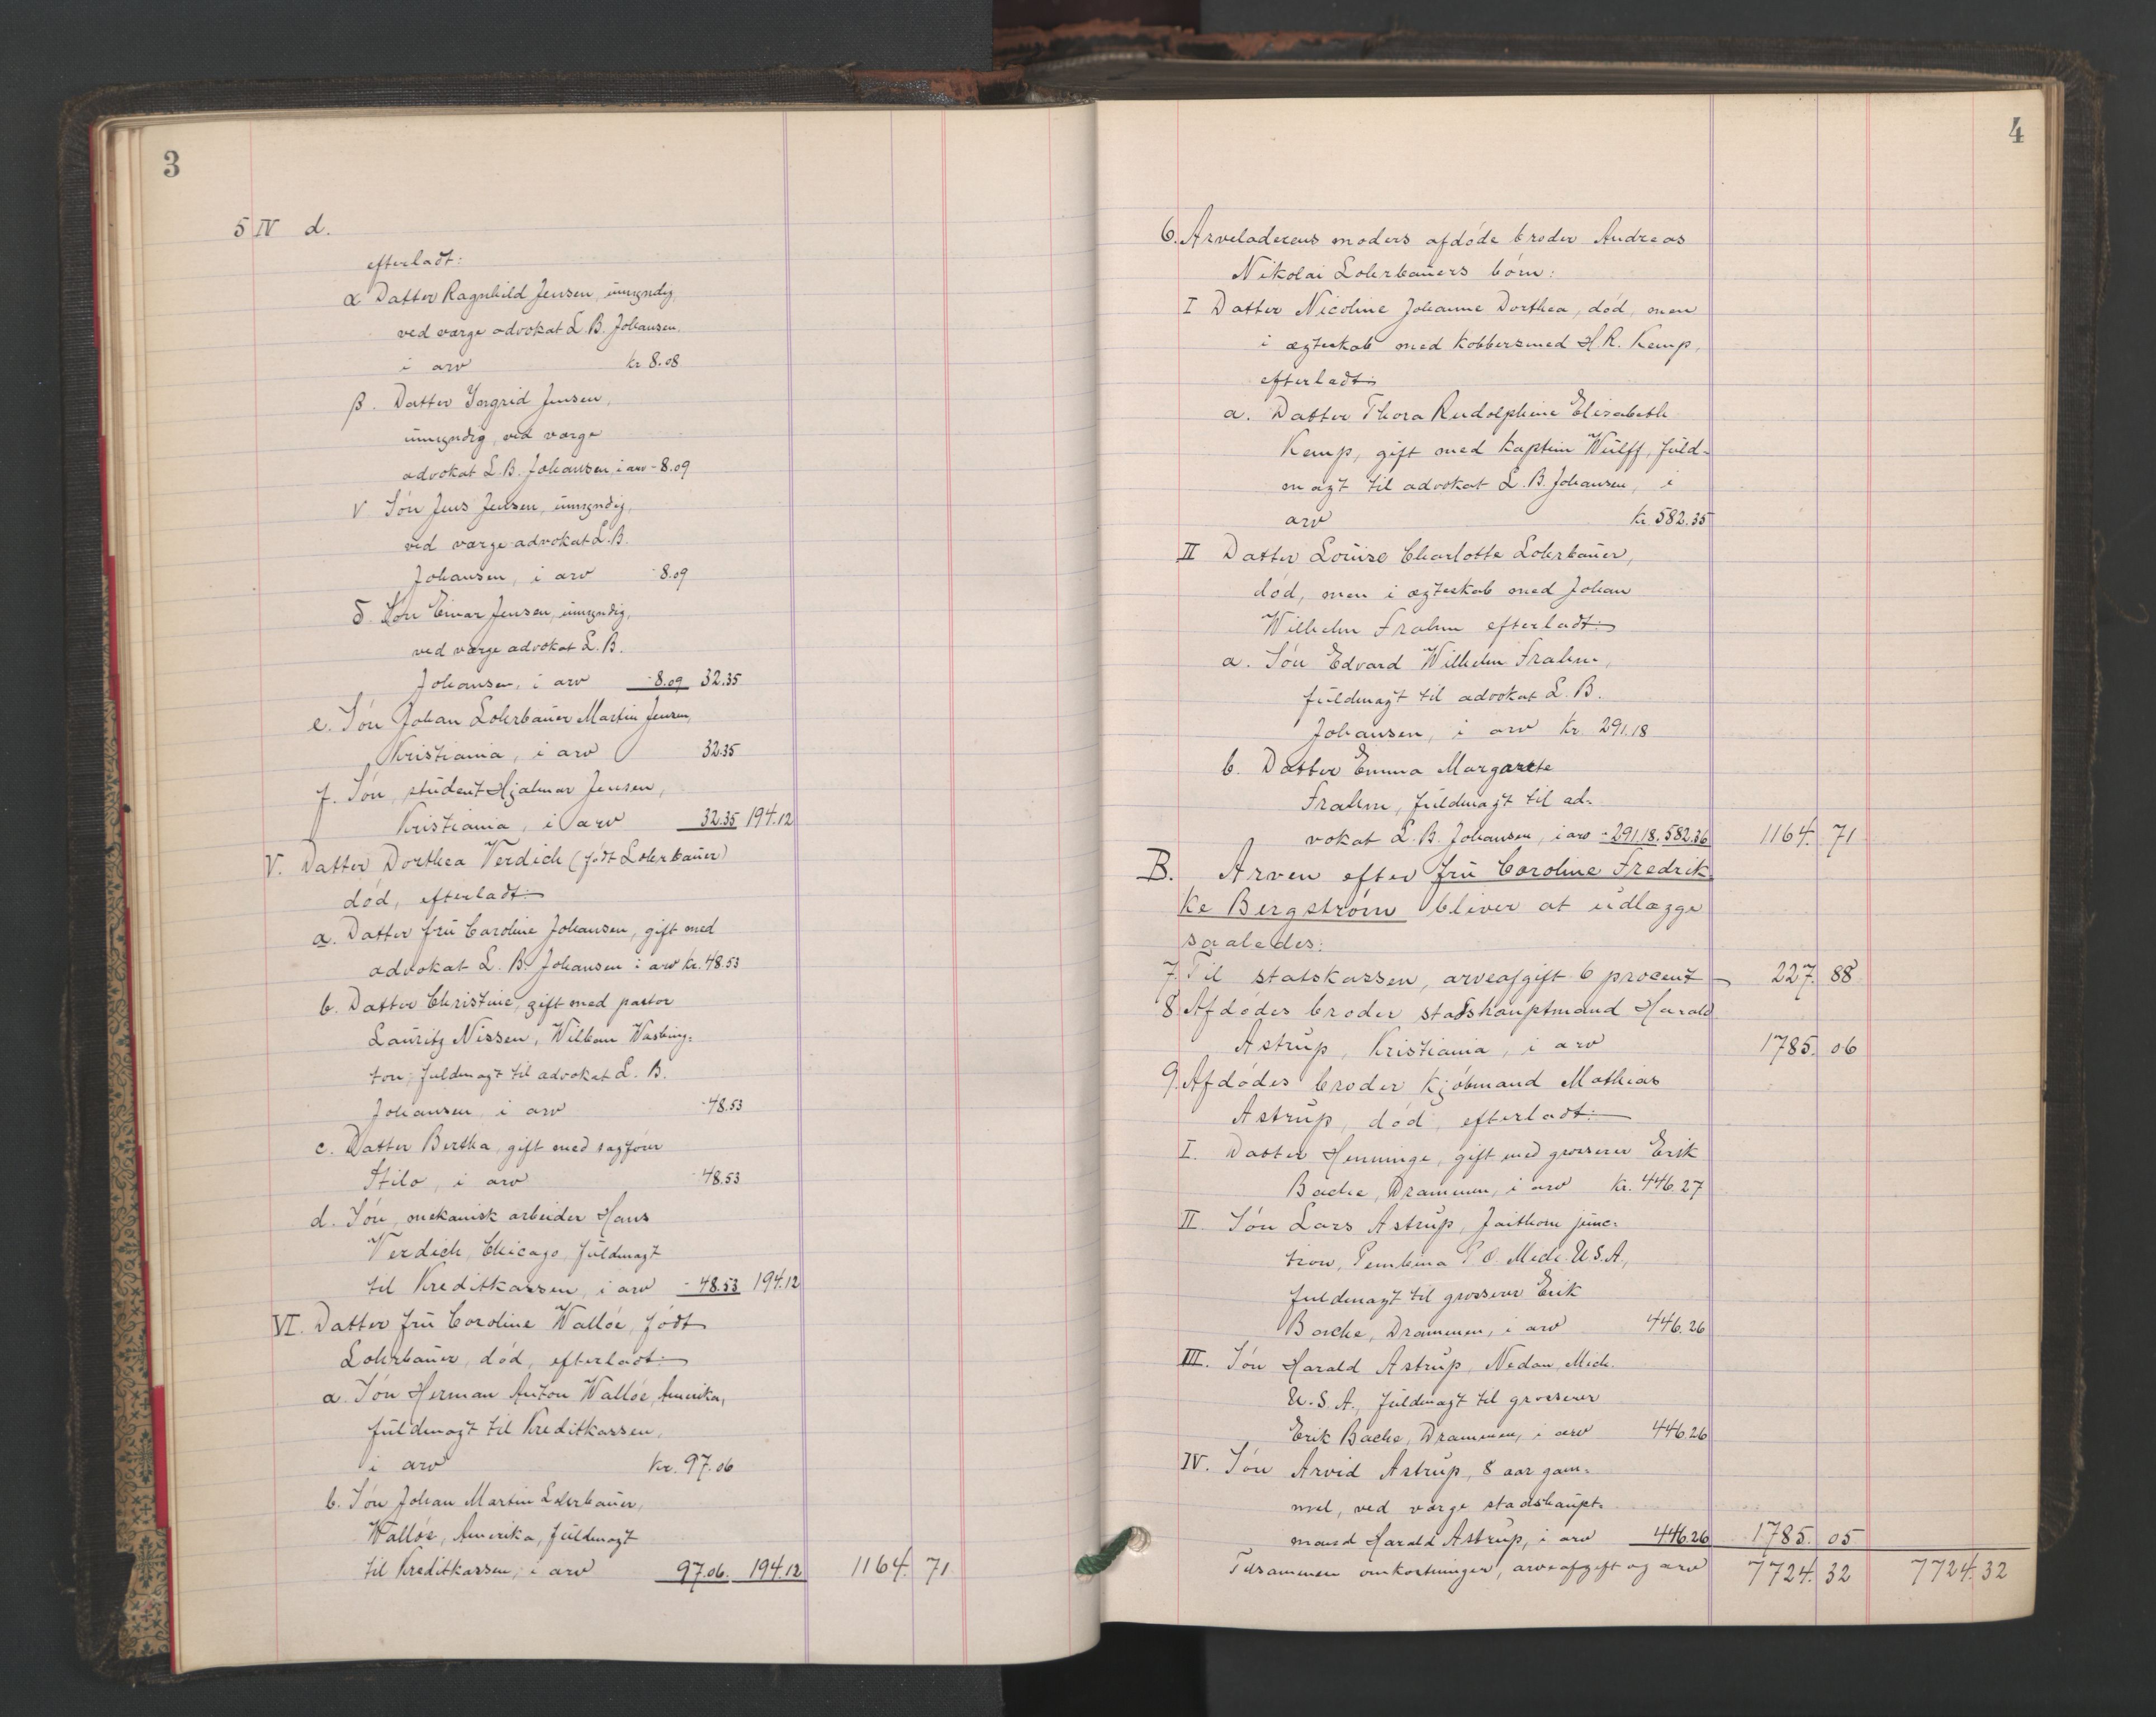 3
5 IV d.
efterladt:
α Datter Ragnhild Jensen, umyndig,
ved værge advokat L. B. Johansen,
i arv kr 8.08
β. Datter Yngrid Jensen,
umyndig, ved værge
advokat L. B. Johansen, i arv - 8.09
γ Søn Jens Jensen, umyndig,
ved værge advokat L. B.
Johansen, i arv - 8.09
δ. Søn Einar Jensen, umyndig,
ved værge advokat L. B.
Johansen, i arv - 8.09 32.35
e. Søn Johan Lohrbauer Martin Jensen,
Kristiania, i arv 32.35
f. Søn, student Hjalmar Jensen,
Kristiania, i arv 32.35 194.12
V. Datter Dorthea Verdich (født Lohrbauer)
død, efterladt:
a. Datter fru Caroline Johansen, gift med
advokat L. B. Johansen i arv kr. 48.53
b. Datter Christine, gift med pastor
Lauritz Nissen, Washing-
ton, fuldmagt til advokat L. B.
Johansen i arv - 48.53
c. Datter Bertha, gift med sagfører
Stilo, i arv - 48.53
d. Søn, mekanisk arbeider Hans
Verdich, Chicago, fuldmagt
til Kreditkassen, i arv - 48.53 194.12
VI. Datter fru Caroline Walløe, født
Lohrbauer, død, efterladt:
a. Søn Herman Anton Walløe, Amerika,
fuldmagt til Kreditkassen,
i arv kr. 97.06
b. Søn Johan Martin Lohrbauer,
Walløe, Amerika, fuldmagt
til Kreditkassen, i arv 97.06. 194.12 1164. 71
4
6. Arveladerens moders afdøde broder Andreas
Nikolai Lohrbauers børn:
I Datter Nicoline Johanne Dorthea, død, men
i ægteskab med kobbersmed H. R. Kemp,
efterladt:
a. Datter Thora Rudolphine Elisabeth
Kemp, gift med kaptein Wulff, fuld-
magt til advokat L. B. Johansen, i
arv kr. 582.35
II Datter Louise Charlotte Lohrbauer,
død, men i ægteskab med Johan
Wilhelm Frahm efterladt:
a. Søn Edvard Wilhelm Frahm,
fuldmagt til advokat L. B.
Johansen, i arv kr. 291.18
b. Datter Emma Margarete
Frahm, fuldmagt til ad-
vokat L. B. Johansen, i arv - 291.18. 582.36 1164. 71
B. Arven efter fru Caroline Fredrik-
ke Bergstrøm bliver at udlægge
saaledes:
7. Til statskassen, arveafgift 6 procent 227. 88
8. Afdødes broder stadshauptmand Harald
Astrup, Kristiania, i arv 1785. 06
9. Afdødes broder kjøbmand Mathias
Astrup, død, efterladt:
I. Datter Henninge, gift med grosserer Erik
Bache, Drammen, i arv kr. 446.27
II. Søn Lars Astrup, junc-
tion, Pembina P. O. Mich. U.S.A,
fuldmagt til grosserer Erik
Bache, Drammen, i arv 446.26
III. Søn Harald Astrup, Nedau, Mich.
U. S. A., fuldmagt til grosserer
Erik Bache, Drammen, i arv 446.26
IV. Søn Arvid Astrup, 8 aar gam-
mel, ved værge stadshaupt-
mand Harald Astrup, i arv 446.26 1785. 05
Tilsammen omkostninger, arveafgift og arv 7724. 32 7724.32